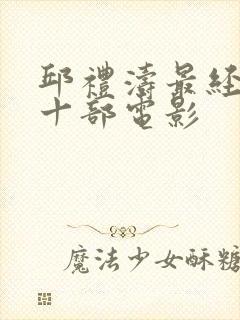 邱禮濤最經
十部電影
魔法少女酥糖